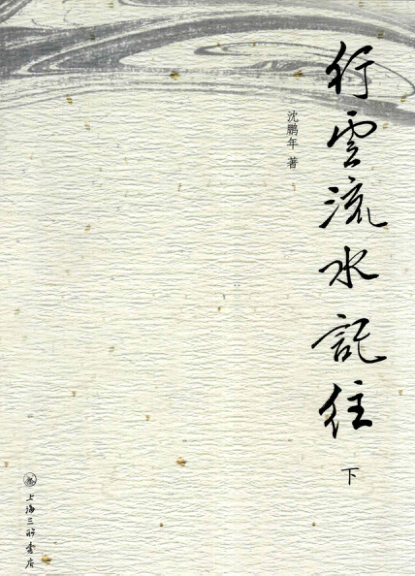 行雲流水記往
下
沈鹏年 著
上海三联书店